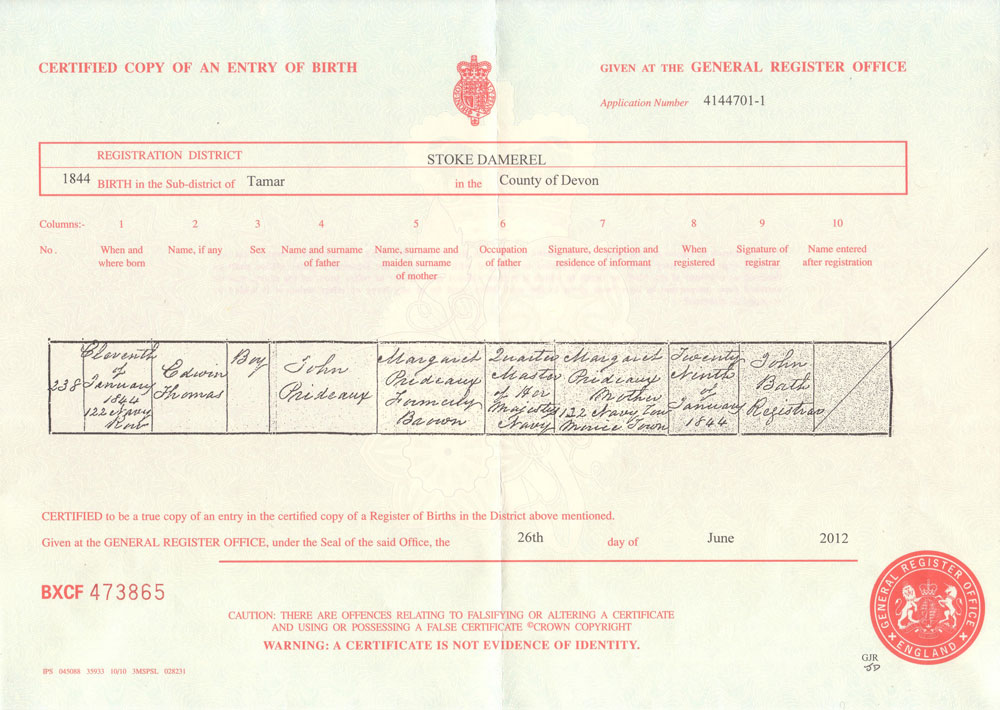 CERTIFIED COPY OF AN ENTRY OF BIRTH
GIVEN AT THE GENERAL REGISTER OFFICE
Application Number 4144701-1
REGISTRATION DISTRICT STOKE DAMEREL
1844 BIRTH in the Sub-district of Tamar in the County of Devon
Columns:- 1 2 3 4 5 6 7 8 9 10
No. When and where born
Name, if any
Sex
Name and surname of father
Name, surname and maiden surname of mother
Occupation of father
Signature, description and residence of informant
When registered
Signature of registrar
Name entered after registration
238
Eleventh
of
January
1844
122 Navy
Row
Edwin
Thomas
Boy
John
Prideaux
Margaret
Prideaux
Formerly
Brown
Quarter
Master
of Her
Majestys
Navy
Margaret
Prideaux
Mother
122 Navy Row
Morice Town
Twenty
Ninth
of
January
1844
John
Bath
Registrar
CERTIFIED to be a true copy of an entry in the certified copy of a Register of Births in the District above mentioned.
Given at the GENERAL REGISTER OFFICE, under the Seal of the said Office, the 26th day of June 2012
BXCF 473865
CAUTION: THERE ARE OFFENCES RELATING TO FALSIFYING OR ALTERING A CERTIFICATE
AND USING OR POSSESSING A FALSE CERTIFICATE ©CROWN COPYRIGHT
WARNING: A CERTIFICATE IS NOT EVIDENCE OF IDENTITY.
GENERAL REGISTER OFFICE
ENGLAND
GJR
IPS 045088 35933 10/10 3MSPSL 028231